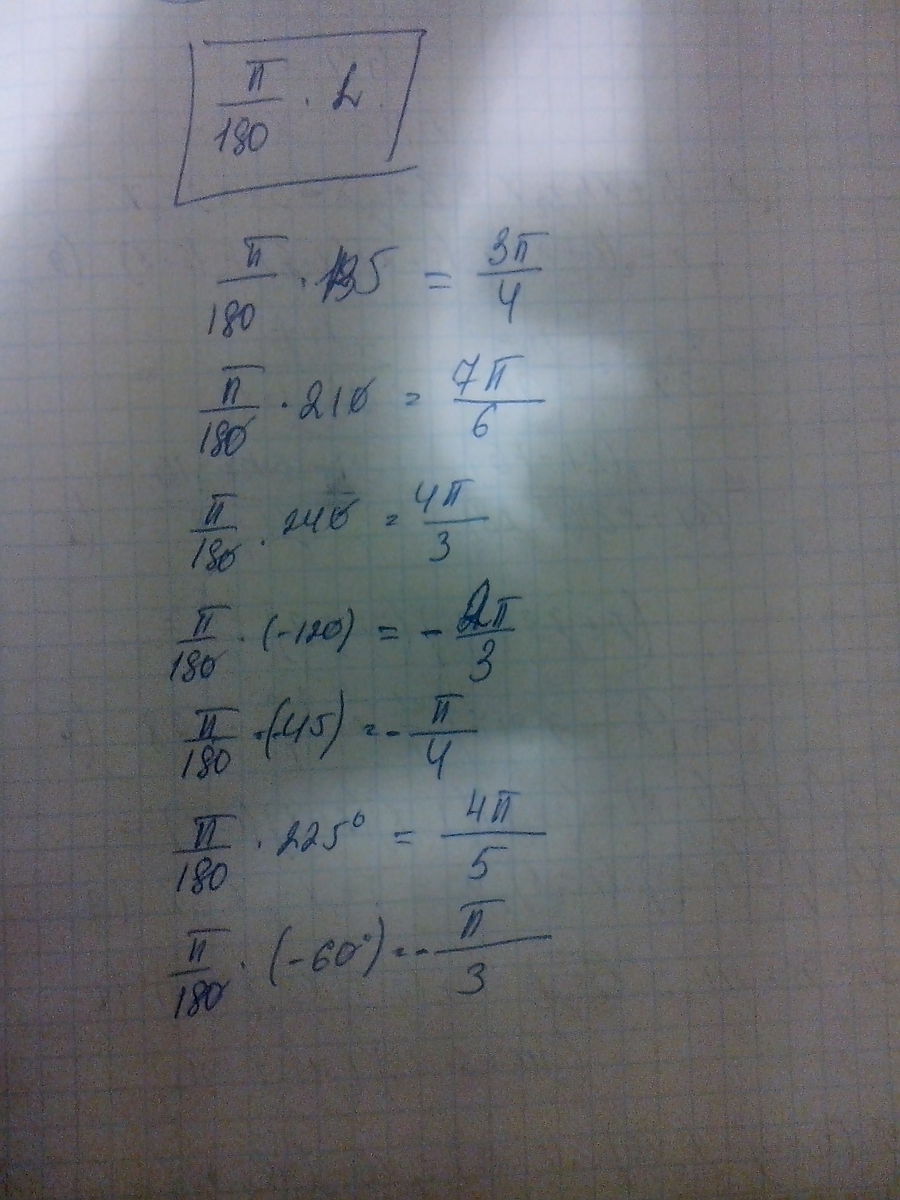 π/180 · α
π/180 · 135 = 3π/4
π/180 · 210 = 7π/6
π/180 · 240 = 4π/3
π/180 · (-120) = - 2π/3
π/180 · (-45) = - π/4
π/180 · 225° = 4π/5
π/180 · (-60°) = - π/3